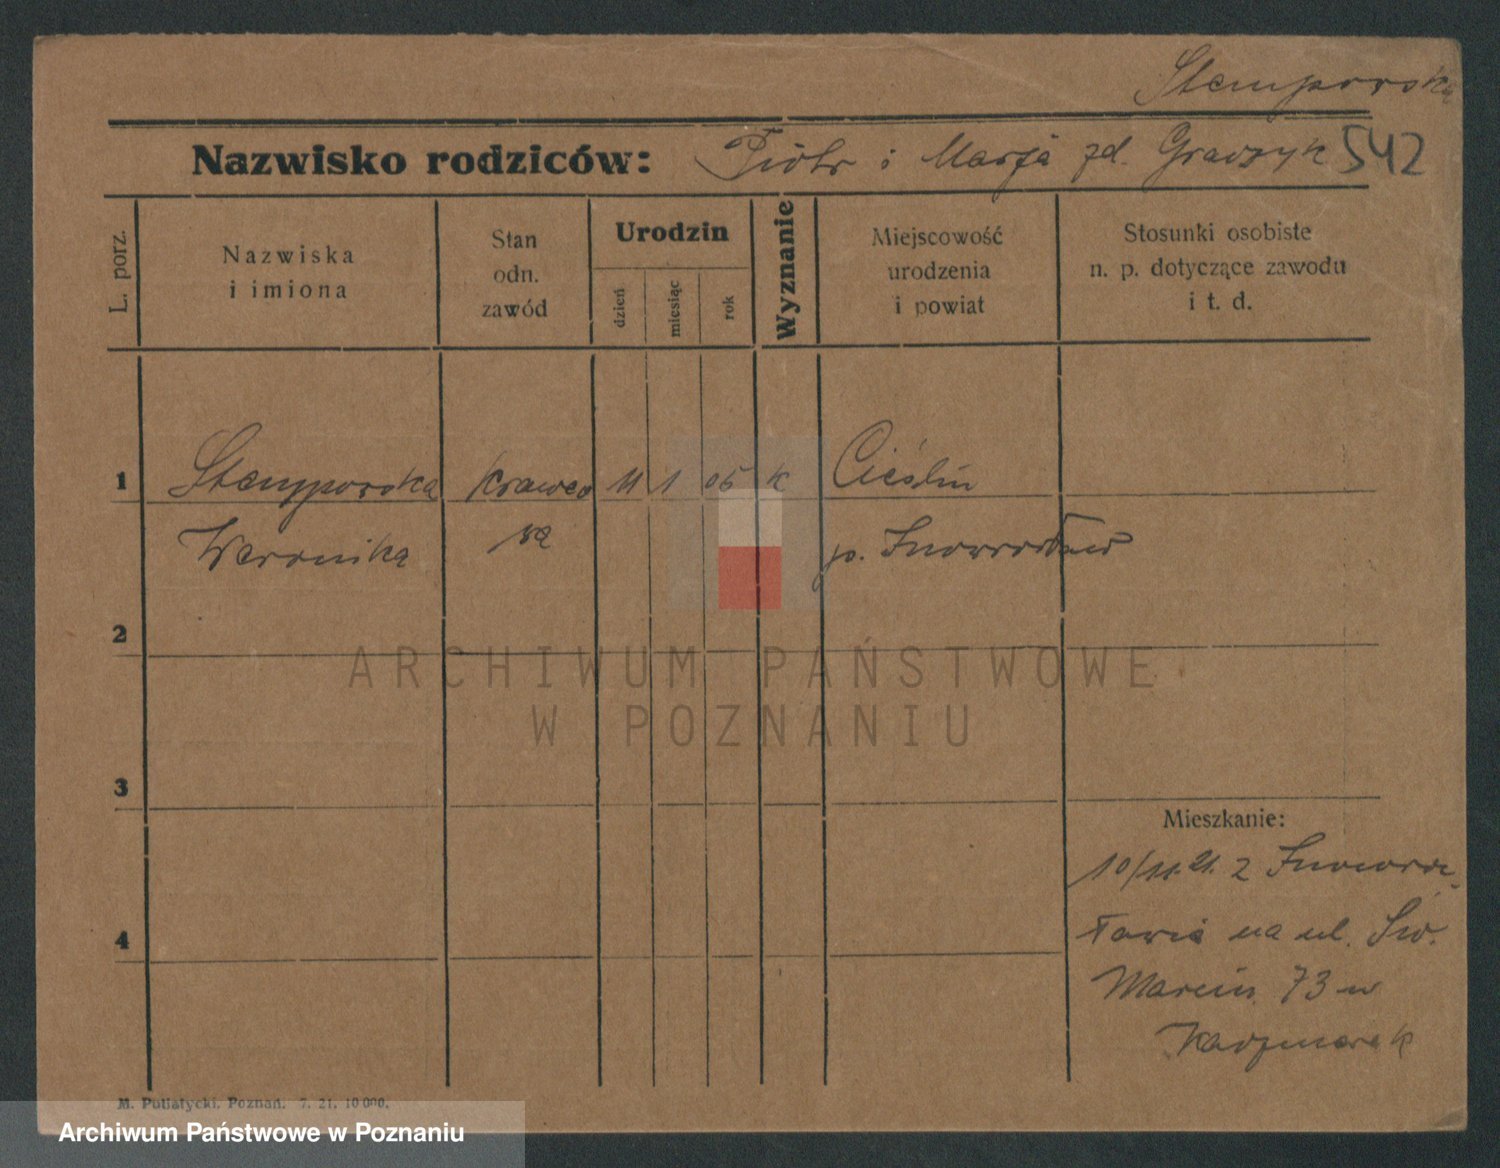 Stemporska
Nazwisko rodziców: Piotr i Marja zd. Graczyk 542
L. porz.
Nazwiska
i imiona
Stan
odn.
zawód
Urodzin
dzień
miesiąc
rok
Wyznanie
Miejscowość
urodzenia
i powiat
Stosunki osobiste
n. p. dotyczące zawodu
i t. d.
1 Stemporska krawco 11 1 05 k Cieślin
Weronika wa p. Inowrocław
2
ARCHIWUM PAŃSTWOWE
W POZNANIU
3
Mieszkanie:
10/11.21. z Inowroc
4
ławia na ul. Św.
Marcin 73 u
Kaczmarek
M. Putiatycki. Poznań. 7. 21. 10 000.
Archiwum Państwowe w Poznaniu